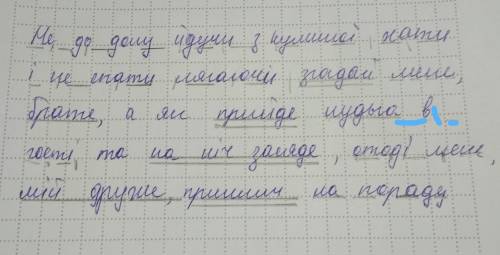 Не до дому йдучи з куминої хати
і не спати лягаючи згадай мене,
брате, а як прийде нудьга в
гості, та на ніч засяде, отоді мене,
мій друже, прилич на пораду